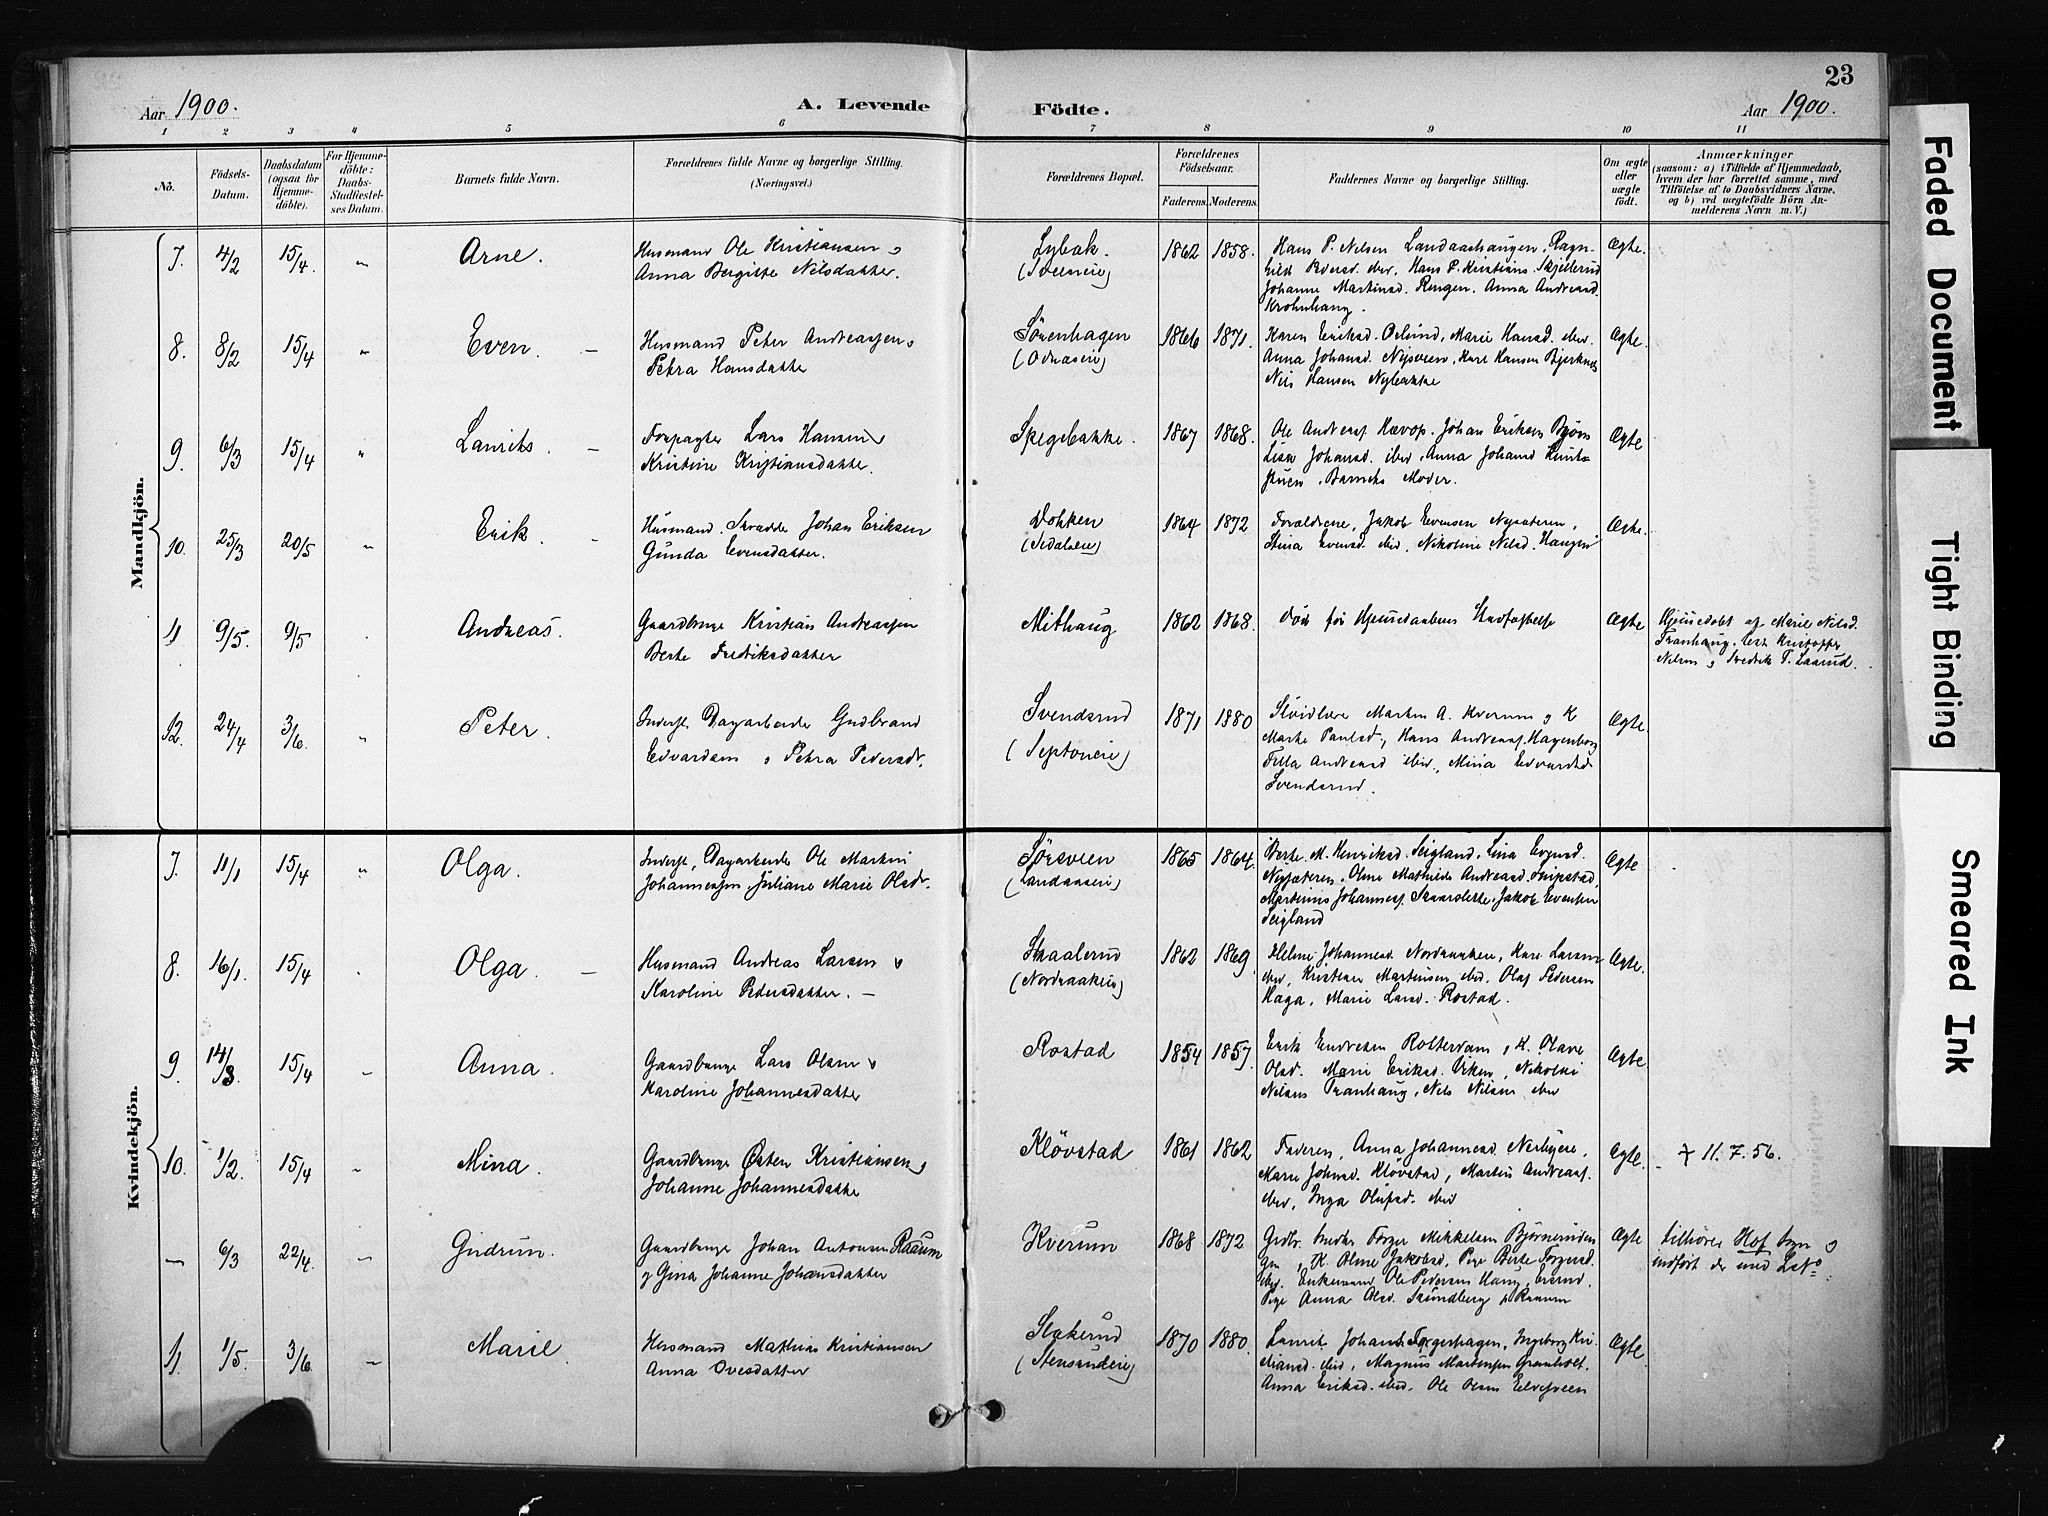 23
Aar 1900.
A. Levende
Födte.
Aar 1900.
1 2 3 4 5 6 7 8 9 10 11
No.
Födsels-Datum.
Daabsdatum (ogsaa for Hjemme-döbte).
For Hjemme-döbte: Daabs-Stadfæstel-ses Datum.
Barnets fulde Navn.
Forældrenes fulde Navne og borgerlige Stilling.
(Næringsvei.)
Forældrenes Bopæl.
Forældrenes Födselsaar.
Faderens. Moderens.
Faddernes Navne og borgerlige Stilling.
Om ægte eller uægte födt.
Anmærkninger
(saasom: a) i Tilfælde af Hjemmedaab,
hvem der har forrettet samme, med
Tilföielse af to Daabsvidners Navne,
og b) ved uægtefödte Börn An-
melderens Navn m. V.)
Mandkjön.
7. 4/2 15/4. " Arne.
Husmand Ole Kristiansen o
Anna Bergitte Nilsdatter.
Lybæk.
1862 1858.
Hans P. Nilsen Landaashaugen, Ragn-
hild ibid., Hans P. Kristians. Skjellerud
Johanne Martinsd. Rengen. Anna Andreasd.
Krohnhaug.
Ægte.
8. 8/2 15/4 " Even. –
Husmand Peter Andreassen o
Petra Hansdatter
Sørenhagen
(Odnæseie)
1866 1871.
Karen Eriksd. Marie Hansd. ibid.
Anna Johansd. Nysveen, Kari Hansen Bjerknes
Nils Hansen Nybakke
Ægte.
9. 6/3 15/4 " Laurits. –
Forpagter Lars Hansen o
Kristine Kristiansdatter.
Spegebakke.
1867 1868.
Ole Andreass. Johan Eriksen
Lisa Johansd. ibid, Anna Johansd
Barnets Moder.
Ægte
10. 25/3 20/5 " Erik. –
Husmand. Skrædder Johan Eriksen
Gunda Evensdatter.
Dokken
1864 1872
Forældrene, Jakob Evensen Nysæteren,
Stina Evensd. ibid, Nikoline Nilsd. Haugen
Ægte.
11 9/5. 9/5 Andreas.
Gaardbruger Kristian Andreassen
Berte Fredriksdatter
Mithaug
1862 1868.
død før Hjemmedaabens Stadfæstelse
Ægte
Hjemmedøbt af Marie Nilsd.
Tranhaug. Kristoffer
Nilsen o Fredrik T. Laarud.
12. 24/4 3/6. " Peter.
Inderst Dagarbeider Gudbrand
Edvardsen o Petra Pedersdr.
Svendsrud
(Septoneie)
1871 1880
Martin A. Kverum o K
Marte Paulsd., Hans Andreass. Hagenborg
Andreasd ibid., Mina Edvardsd
Svendsrud.
Ægte.
Kvindekjön.
7. 11/1 15/4 " Olga.
Inderst, Dagarbeider Ole Martin
Johannessen, Juliane Marie Olsdr.
Sørsveen
(Landaaseie)
1865 1864.
Berte M. Henriksd. Seigland, Lina Evensd.
Nysæteren, Oline Mathilde Andreasd.
Martinius Johanness. Jakob Evensen
Seigland
Ægte
8. 16/1. 15/4 Olga. –
Husmand Andreas Larsen o
Karoline Pedersdatter. –
Skaalerud
(Nordraakeie)
1862 1869
Helene Johannesd. Kari Larsen
ibid, Kristian Martinsen ibid. Olaf Pedersen
Haga, Marie Larsd. Rostad.
Ægte.
9. 14/3. 15/4 " Anna.
Gaardbruger Lars Olsen o
Karoline Johannesdatter
Rostad
1854 1857.
Erik Endresen Rotterdam o K. Olave
Olsd. Marie Eriksd. Nikolai
Nilsen Tranhaug, Nils Nilsen ibid
Ægte
10. 1/2. 15/4 " Mina.
Gaardbruger Østen Kristiansen o
Johanne Johannesdatter
Kløvstad
1861 1862
Faderen, Anna Johannesd.
Marie Johnsd. Kløvstad, Martin Andreass.
ibid, Inga Olufsd. ibid
Ægte.
+ 11. 7. 56.
– 6/3 22/4. " Gudrun.
Gaardbruger Johan Antonsen Raaum
o Gina Johanne Johansdatter
Kverum
1868 1872
Grdbr. Smeder Torger Mikkelsen Bjørneruden
o K. Oline Jakobsd. Pige Berte Torgersd.
ibd. Enkemand Ole Pedersen Haug,
Pige Anna Olsd. Sundberg Raaum
Ægte
Tilhører Hof Sogn o
indført der med
11. 1/5. 3/6 " Marie.
Husmand Mathias Kristiansen
Anna Ovesdatter
Slakerud
(Stensrudeie)
1870 1880.
Laurits Johans. Torgerhagen, Ingeborg Kri-
stiansd. ibid, Magnus Martinsen Granholt.
Anna Eriksd. ibid. Ole Olsen
Ægte
Faded Document
Tight Binding
Smeared Ink